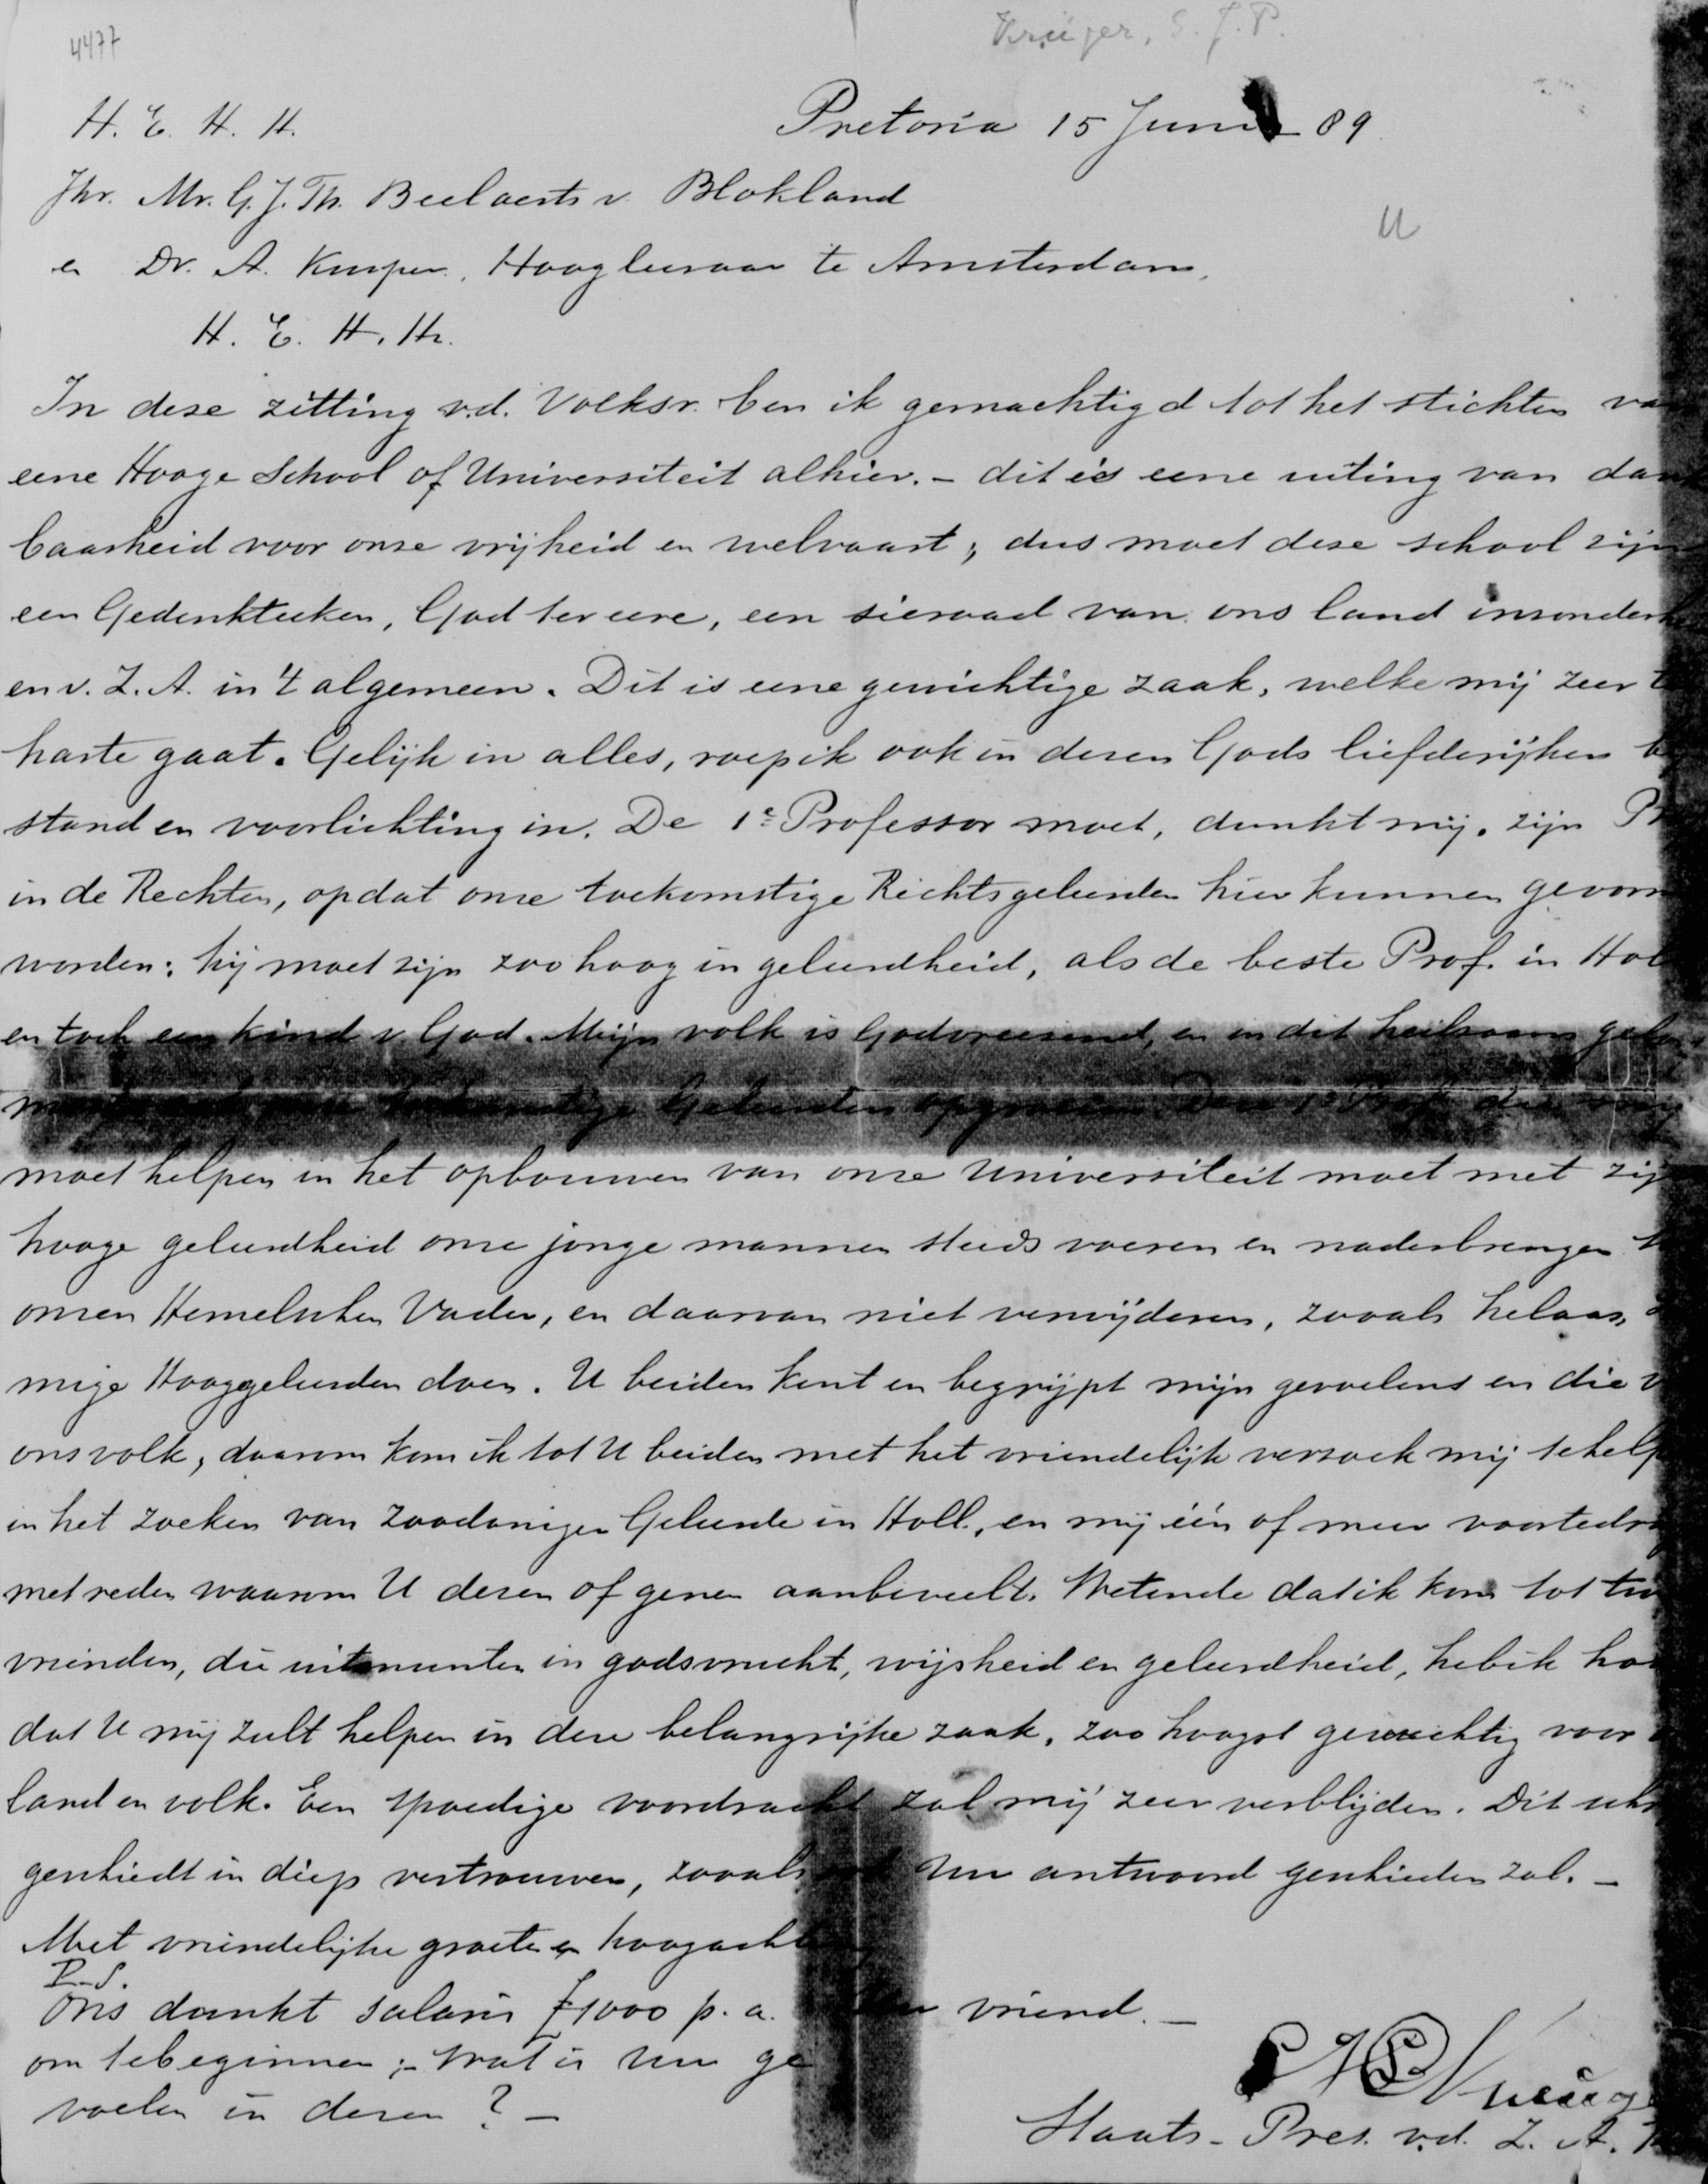 4477
Krüger, S. J. P.
H. E. H. H.
Pretoria 15 Juni 89
Jhr. Mr. G. J. Th. Beelaerts v. Blokland
U
en Dr. A. Kuyper, Hoogleeraar te Amsterdam,
H. E. H. Hr.
In deze zitting v.d. Volksr. ben ik gemachtigd tot het stichten van
eene Hooge School of Universiteit alhier. - dit is eene uiting van dank
baarheid voor onze vrijheid en welvaart; dus moet deze school zijn
een Gedenkteeken, God ter eere, een sieraad van ons land inzonderh
en v. Z. A. in 't algemeen. Dit is eene gewichtige zaak, welke mij zeer t
harte gaat. Gelijk in alles, roep ik ook in dezen Gods liefderijken b
stand en voorlichting in. De 1e Professor moet, dunkt mij, zijn Pr
in de Rechten, opdat onze toekomstige Rechtsgeleerden hier kunnen gevorm
worden; hij moet zijn zoo hoog in geleerdheid, als de beste Prof. in Hol
en toch een kind v God. Mijn volk is Godvreezend, en in dit heilzaam gelo
toekomstige Geleerden opgroeien. Deze 1e Prof. die
moet helpen in het opbouwen van onze Universiteit moet met zijn
hooge geleerdheid onze jonge mannen steeds voeren en naderbrengen t
onzen Hemelschen Vader, en daarvan niet verwijderen, zooals helaas,
mige Hooggeleerden doen. U beiden kent en begrijpt mijn gevoelens en die v
ons volk, daarom kom ik tot U beiden met het vriendelijk verzoek mij te help
in het zoeken van zoodanigen Geleerde in Holl., en mij één of meer voortedra
met reden waarom U dezen of genen aanbeveelt. Wetende dat ik kom tot tw
vrienden, die uitmunten in godsvrucht, wijsheid en geleerdheid, heb ik ho
dat U mij zult helpen in deze belangrijke zaak, zoo hoogst gewichtig voor
land en volk. Een spoedige voordracht zal mij zeer verblijden. Dit schr
geschiedt in diep vertrouwen, zooals Uw antwoord geschieden zal. -
Met vriendelijke groete en hoogacht
P.S.
Ons dunkt salaris £1000 p. a.
vriend. -
om tebeginnen; - Wat is Uw ge
voelen in dezen? -
S J P Kruger
Staats-Pres. v.d. Z. A.